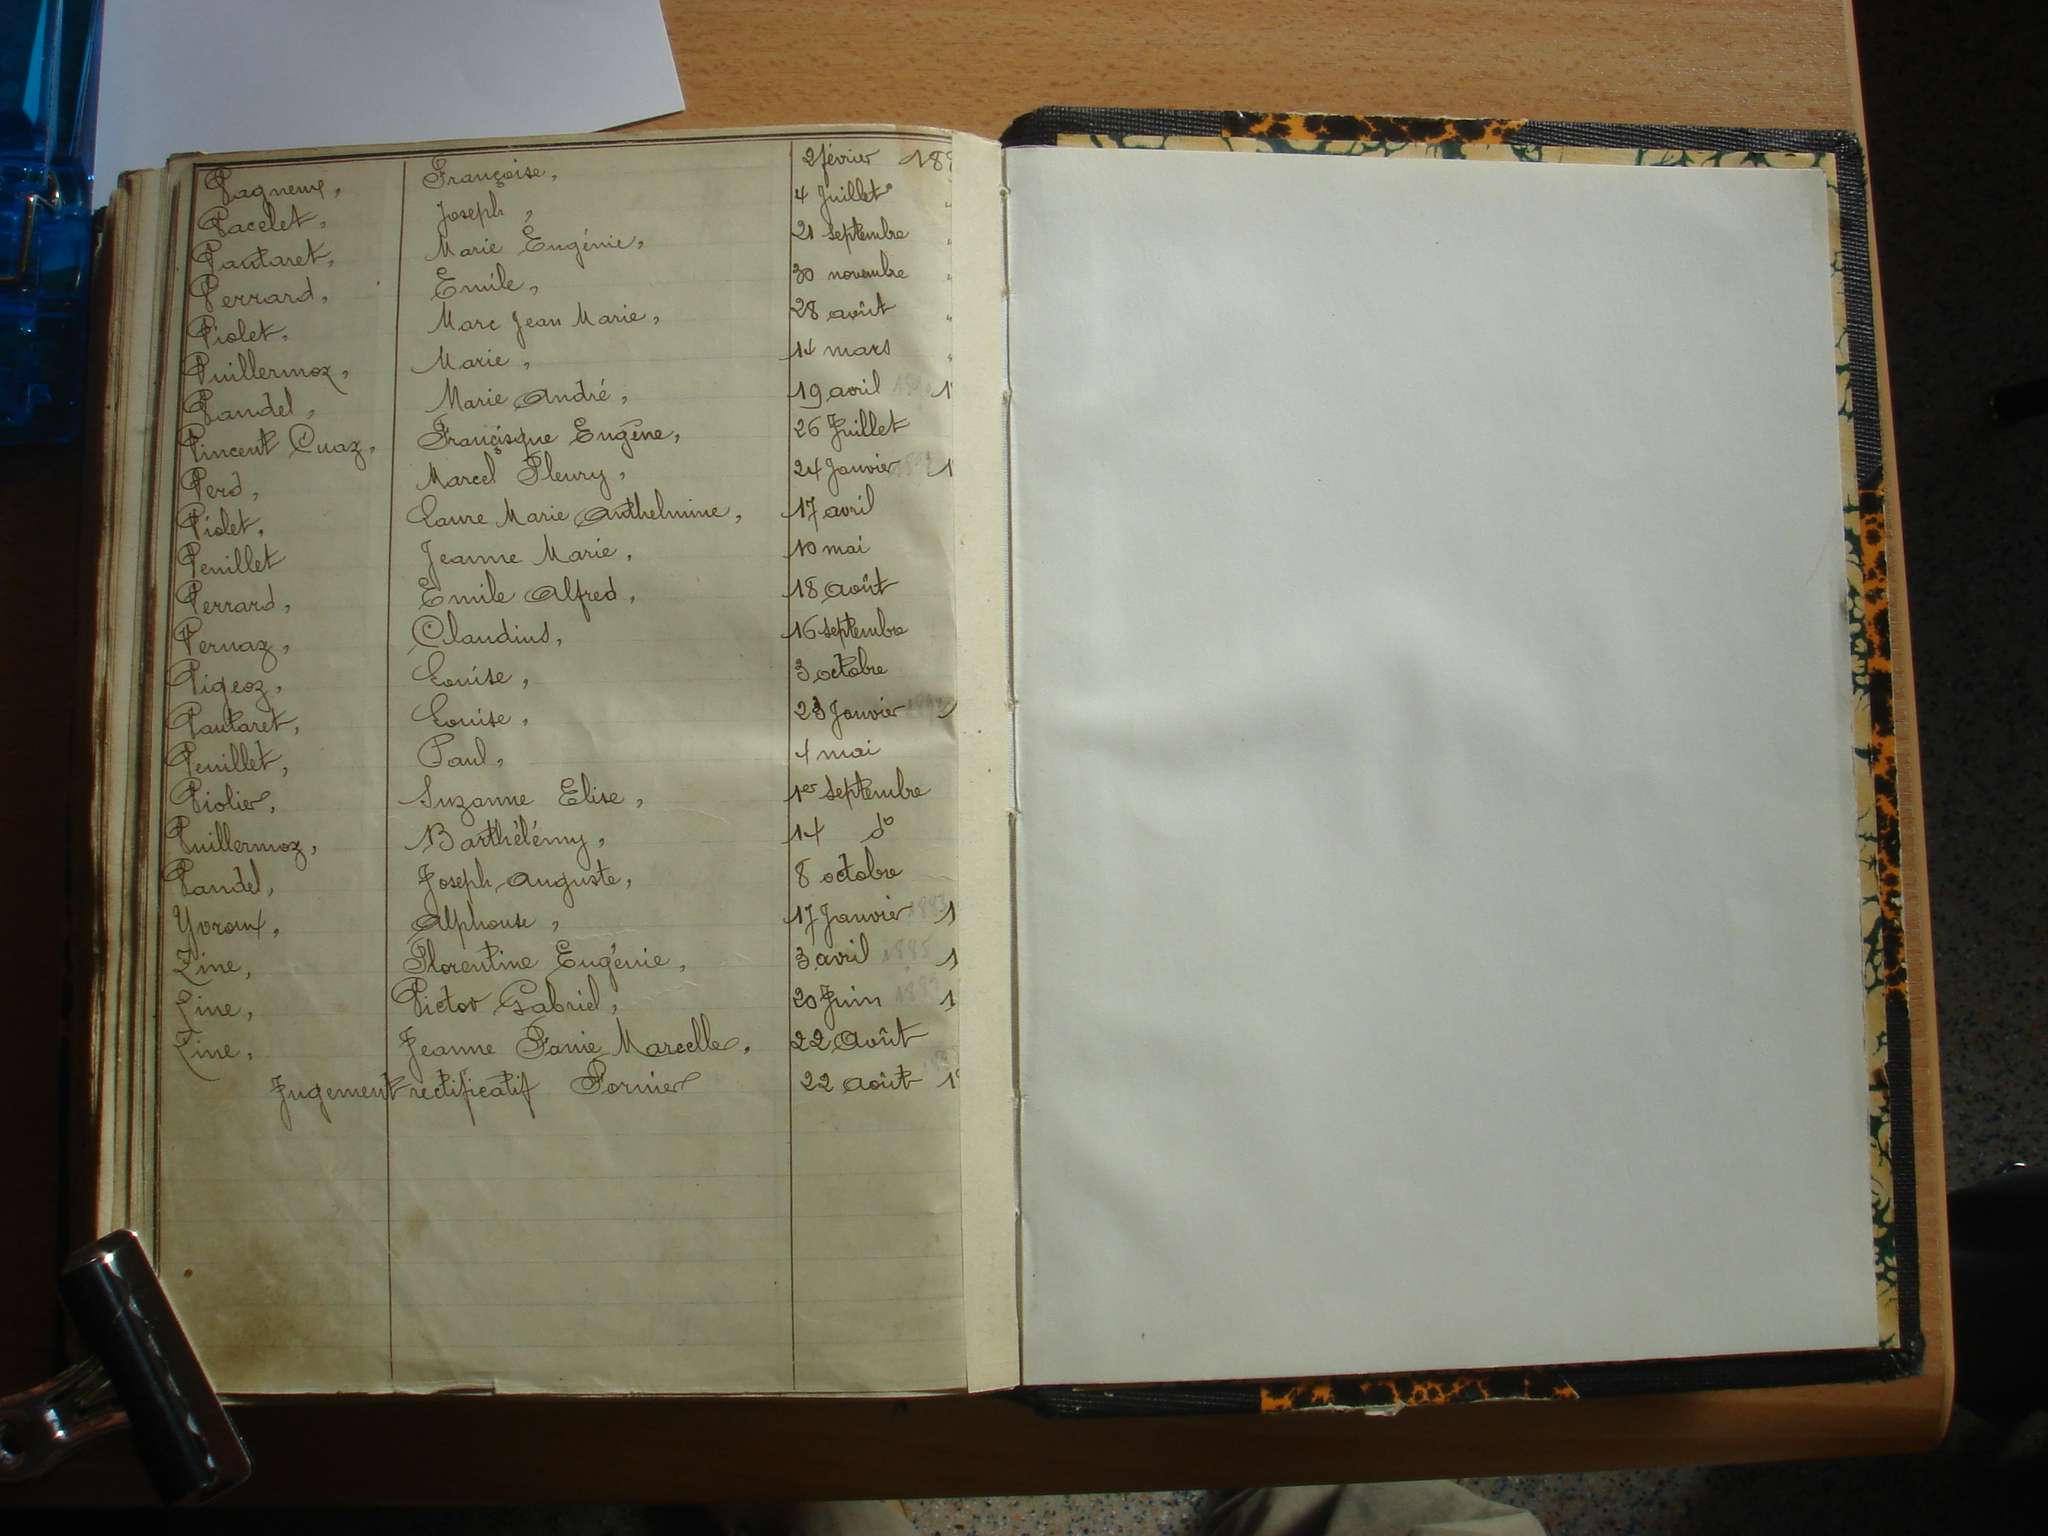 Vagneux, Françoise, 2 février 188
Vacelet, Joseph, 4 Juillet
Vautaret, Marie Eugénie, 21 septembre
Verrard, Emile, 30 novembre
Violet, Marc Jean Marie, 28 août
Vuillermoz, Marie, 14 mars
Vandel, Marie André, 19 avril 1
Vincent Cuaz, Françisque Eugène, 26 Juillet
Verd, Marcel Fleury, 24 Janvier 1
Violet, Laure Marie Anthelmine, 17 avril
Veuillet Jeanne Marie, 10 mai
Verrard, Emile Alfred, 18 août
Vernaz, Claudius, 16 septembre
Vigeoz, Louise, 3 octobre
Vautaret, Louise, 23 Janvier 1
Veuillet, Paul, 4 mai
Violier, Suzanne Elise, 1er septembre
Vuillermoz, Barthélémy, 14 do
Vandel, Joseph Auguste, 8 octobre
Yvroux, Alphonse, 17 Janvier 1883 1
Zine, Florentine Eugénie, 3 avril 1885 1
Zine, Victor Gabriel, 20 Juin 1
Zine, Jeanne Fanie Marcelle, 22 Août
Jugement rectificatif Fornier 22 août 1